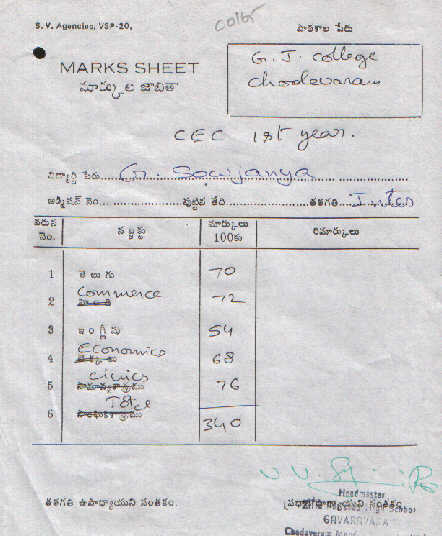 S. V. Agencies, VSP-20,
పాఠశాల పేరు
MARKS SHEET
మార్కుల జాబితా
G. J. college
Chodavaram
CEC 1st year.
విద్యార్థి పేరు G. Sowjanya
అడ్మిషన్ నెం. పుట్టిన తేది తరగతి Inter
వరుస నెం. సబ్జెక్టు మార్కులు 100కు రిమార్కులు
1 తెలుగు 70
2 Commerce 72
3 ఇంగ్లీషు 54
4 Economics 68
5 Civics 76
6 Total 340
తరగతి ఉపాధ్యాయుని సంతకం.
Headmaster
High School